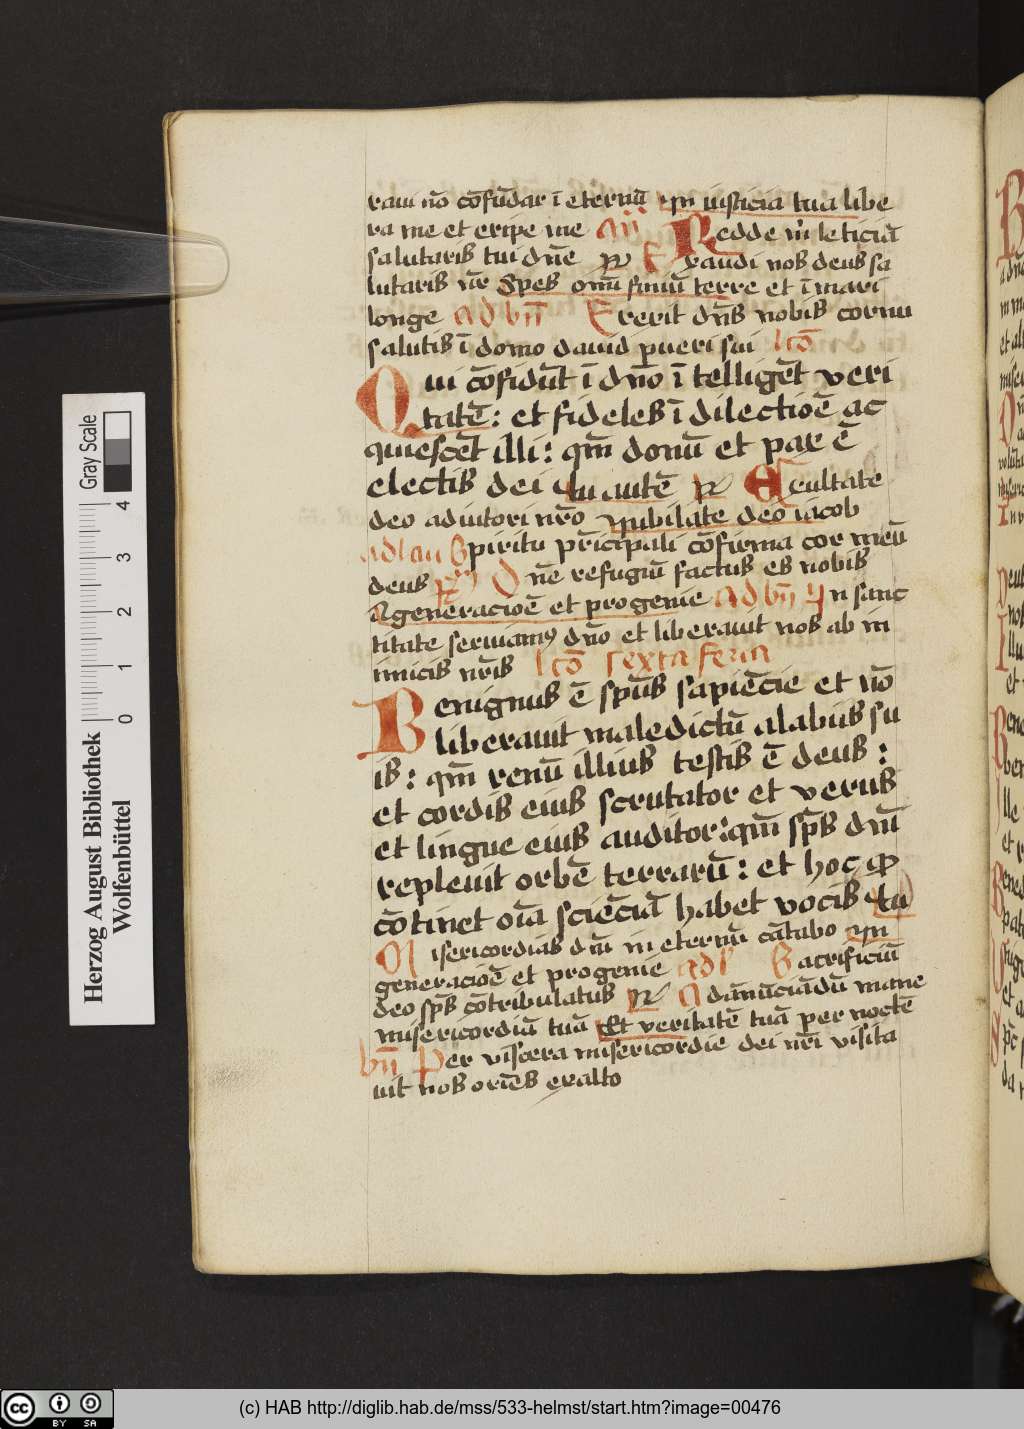 raui nō cōfūdar ī eternū In iusticia tua libe
ra me et eripe me añ Redde m̄ leticiā
salutaris tui dn̄e Exaudi nos deus sa
lutaris nr̄ Spes om̄ finiū terre et ī mari
longe ad bn̄ Erexit dn̄s nobis cornu
salutis ī domo dauid pueri sui lcō
Qui cōfidūt ī dn̄o ītelligēt veri
tatē: et fideles ī dilectioē ac
quiescēt illi: qm̄ donū et pax ē
electis dei Tu autē Exultate
deo adiutori nr̄o Jubilate deo iacob
ad lau Spiritu pr̄icipali cōfirma cor meū
deus Dn̄e refugiū factus es nobis
A generacioē et progenie Ad bn̄ In sanc
titate seruiamꝰ dn̄o et liberauit nos ab in
imicis nr̄is lcō sexta feria
Benignus ē spūs sapiēcie et nō
liberauit maledictū a labiis su
is: qm̄ renū illius testis ē deus:
et cordis eius scrutator et verus
et lingue eius auditor: qm̄ sp̄s dn̄i
repleuit orbē terrarū: et hoc qͩ
cōtinet oīa sciēciā habet vocis tu
Misericordias dn̄i in eternū cātabo In
generacioē et progenie ad l Sacrificiū
deo sp̄s cōtribulatus Ad ānūciādū mane
misericordiā tuā Et veritatē tuā per noctē
bn̄ Per viscera misericordie dei nr̄i visita
uit nos oriēs ex alto
Gray Scale
0 1 2 3 4
Herzog August Bibliothek
Wolfenbüttel
cc BY SA
(c) HAB http://diglib.hab.de/mss/533-helmst/start.htm?image=00476